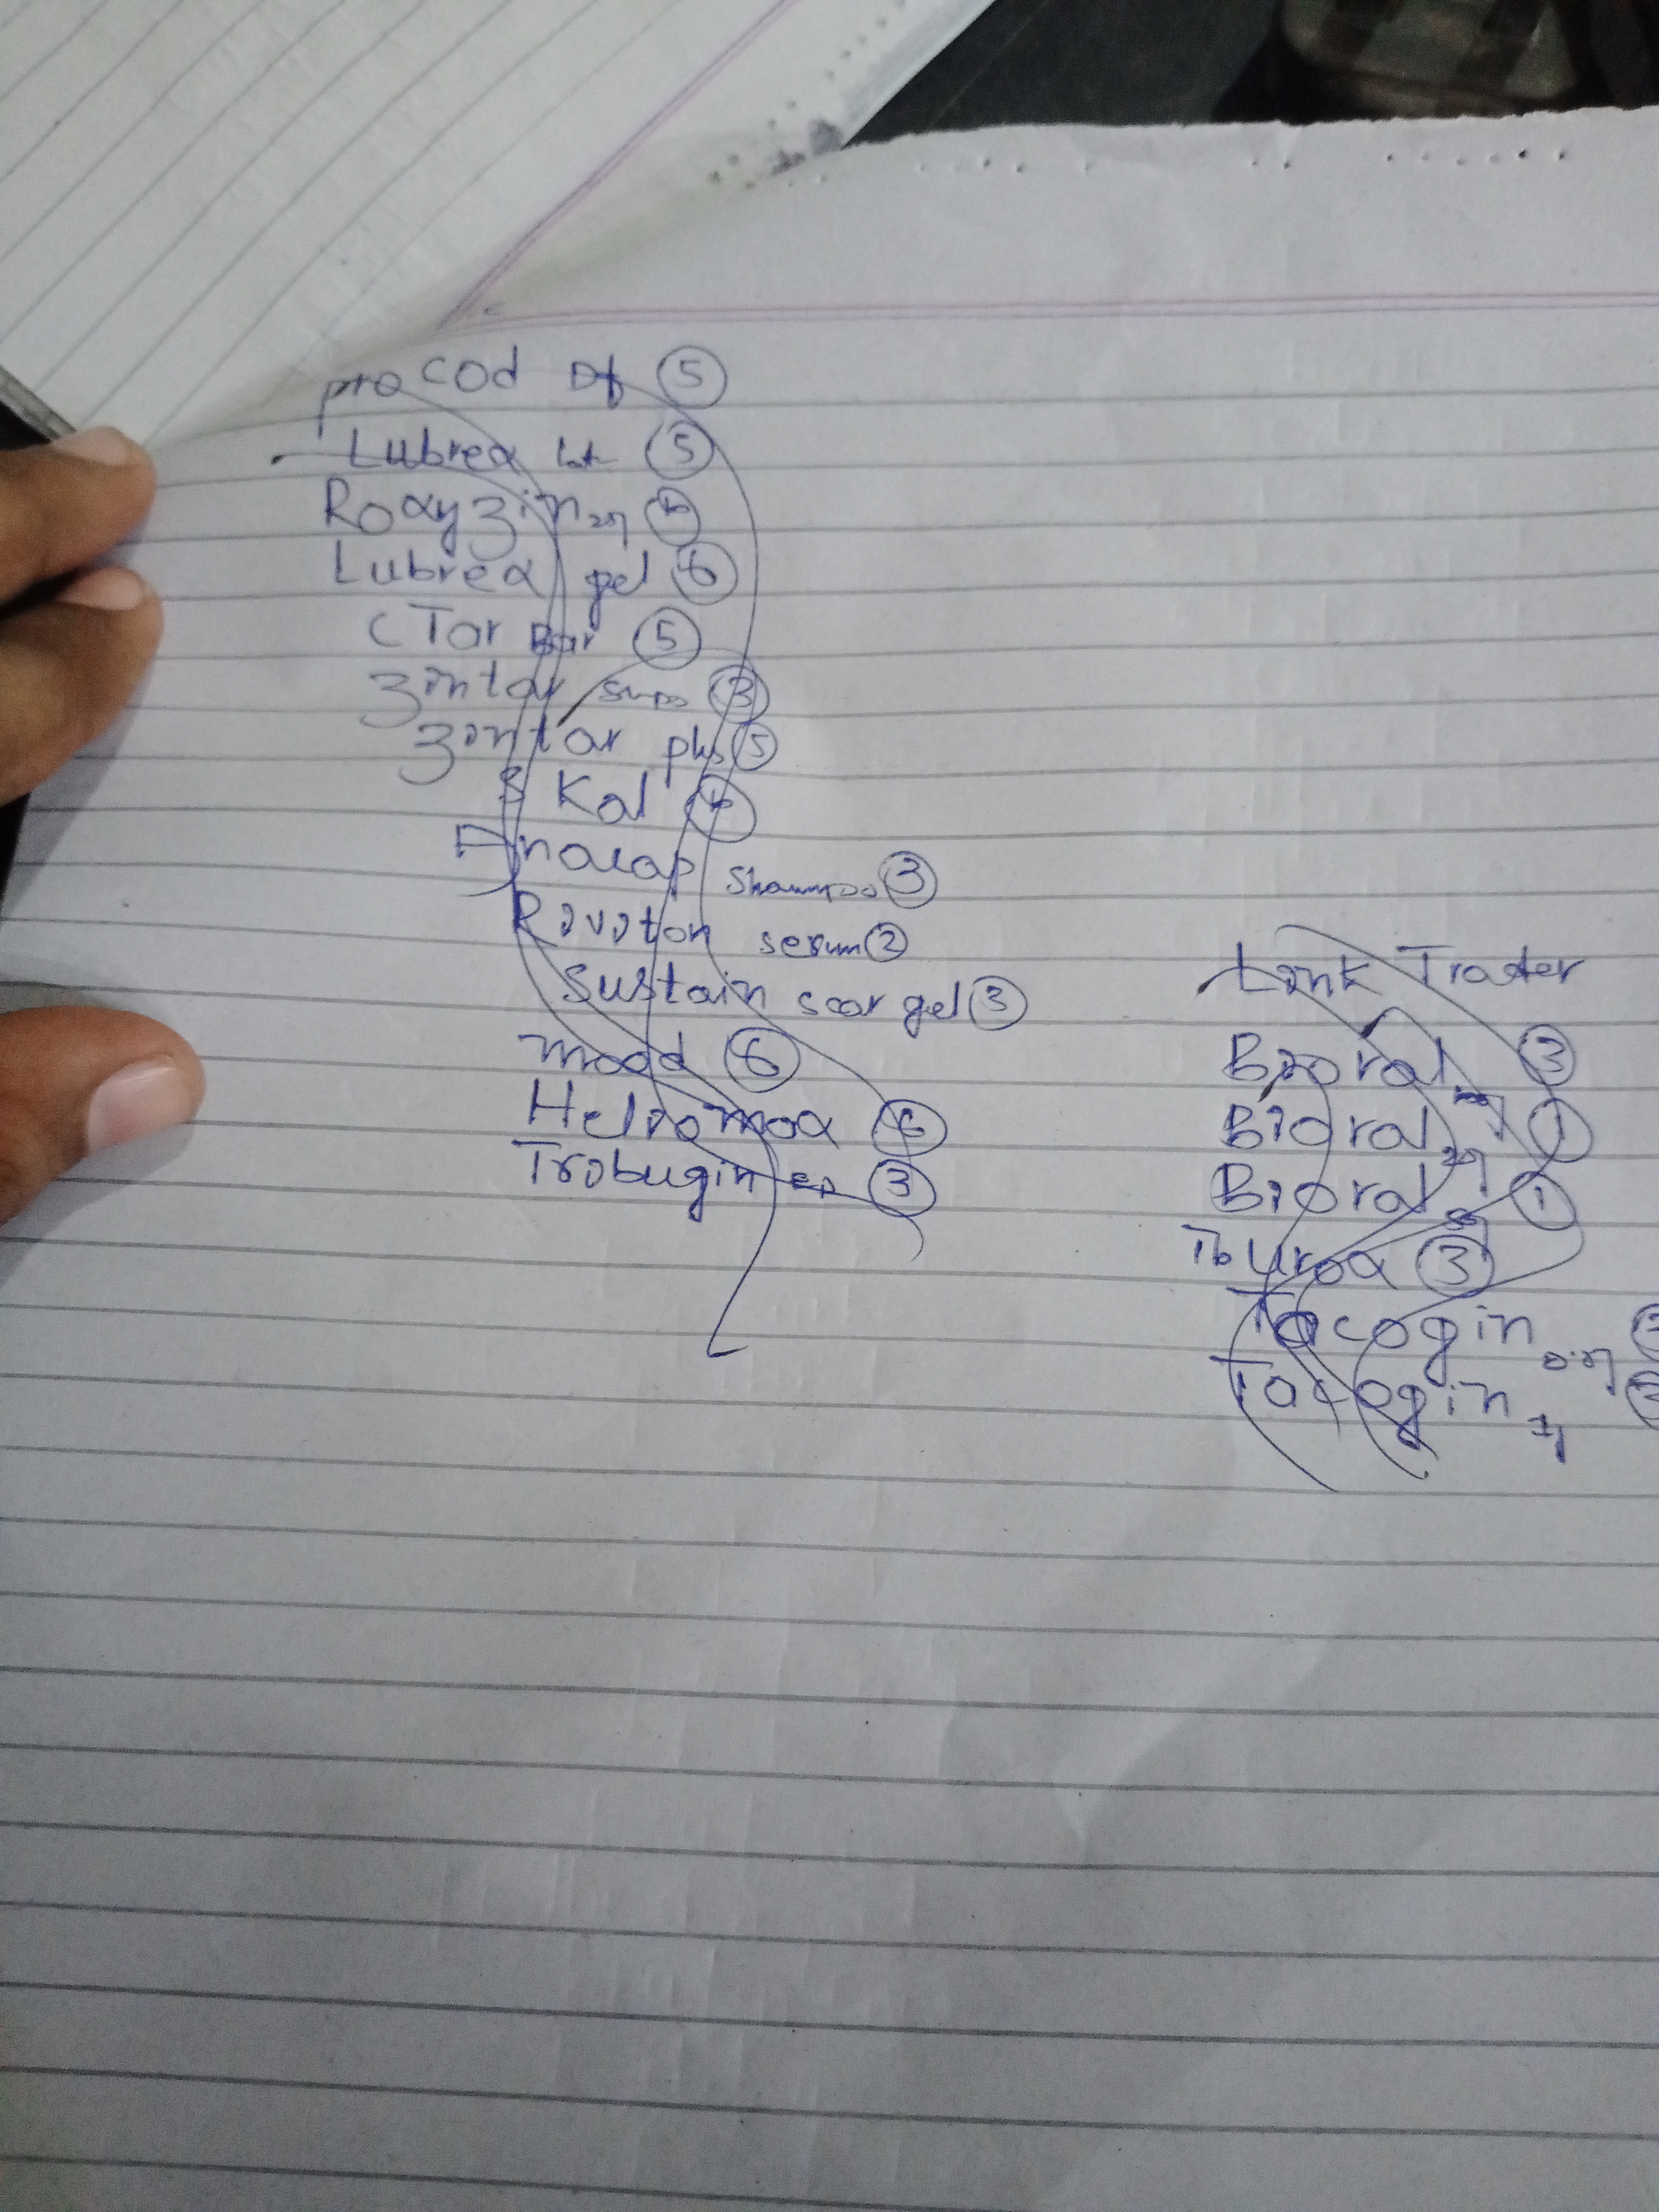 procod Df 5
Lubrex lot 5
Roxyzin 25
Lubrex gel 6
CTar Bar 5
Zintar 3
Zintar plus 5
S Kal
Anacap Shampoo 3
Raviton serum 2
Sustain scar gel 3
mood 6
Heliomox 6
Trabugin 3
Link Trader
Bioral 3
Bioral 25 1
Bioral 50 1
Tburox 3
Tacogin 0.5
Tacogin 1